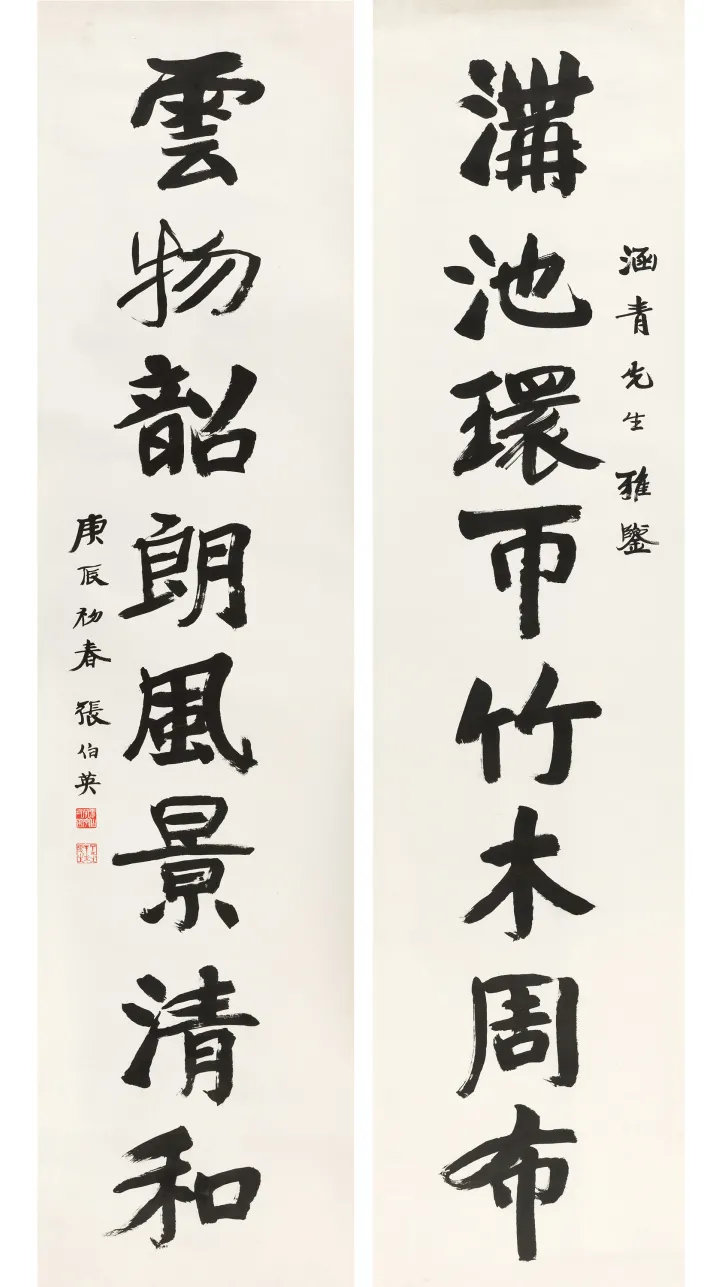 涵青先生雅鑒
溝池環帀竹木周布
雲物韶朗風景清和
庚辰初春 張伯英